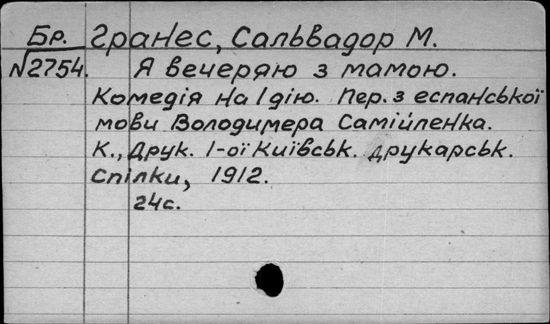 Бр. Гранес, Сальвадор М.
№2754. Я вечеряю з мамою.
Комедія на І дію. Пер. з еспанської
мови Володимера Самійленка.
К., Друк. І-ої Київськ. друкарськ.
спілки, 1912.
24с.